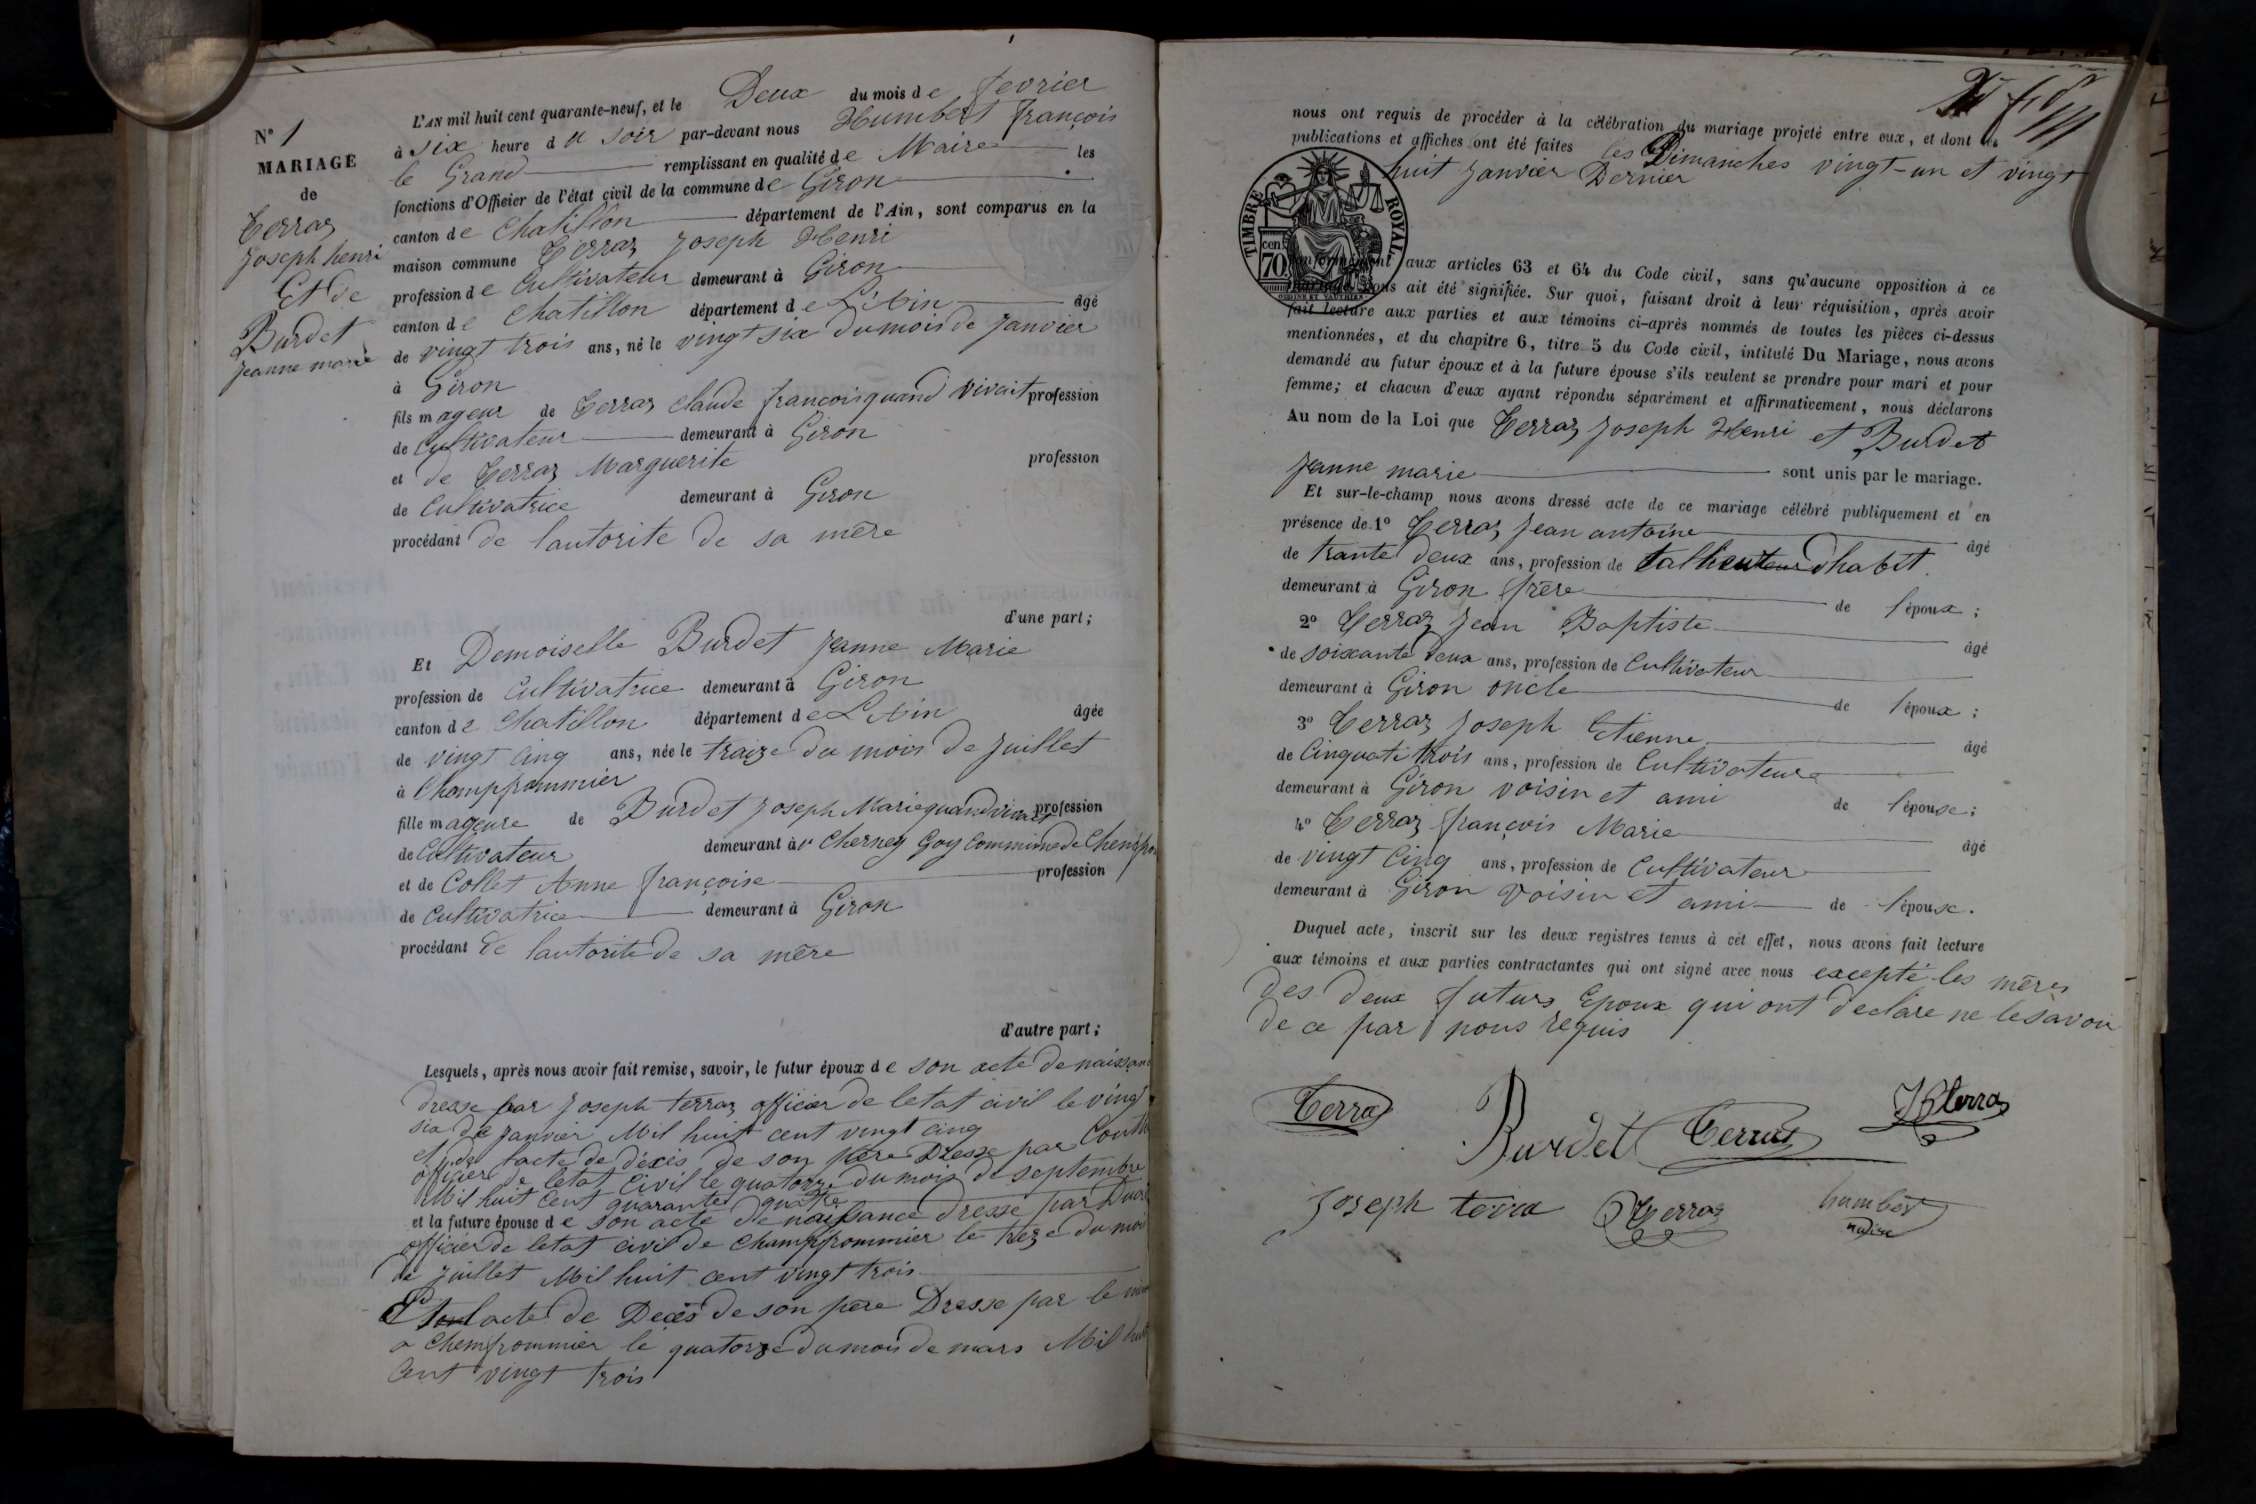 N° 1
MARIAGE
de
Terraz
Joseph henri
Et de
Burdet
Jeanne marie
L'AN mil huit cent quarante-neuf, et le Deux du mois de fevrier
à six heure du soir par-devant nous Humbert françois
le Grand remplissant en qualité de Maire les
fonctions d'Officier de l'état civil de la commune de Giron
canton de Chatillon département de l'Ain, sont comparus en la
maison commune Terraz Joseph Henri
profession de Cultivateur demeurant à Giron
canton de Chatillon département de L'Ain âgé
de vingt trois ans, né le vingt six du mois de Janvier
à Giron
fils mageur de Terraz Claude francois quand vivait profession
de Cultivateur demeurant à Giron
et de Terraz Marguerite profession
de Cultivatrice demeurant à Giron
procédant de lautorite de sa mère
d'une part;
Et Demoiselle Burdet Jeanne Marie
profession de Cultivatrice demeurant à Giron
canton de Chatillon département de L'Ain âgée
de vingt cinq ans, née le traize du mois de Juillet
à Champfrommier
fille mageure de Burdet Joseph Marie quand vivait profession
de Cultivateur demeurant à Cherney Goy Commune de
et de Collet Anne françoise profession
de Cultivatrice demeurant à Giron
procédant de lautorite de sa mère
d'autre part;
Lesquels, après nous avoir fait remise, savoir, le futur époux de son acte de
dresse par Joseph terraz officier de letat civil le vingt
six de Janvier Mil huit cent vingt cinq
et de lacte de décès de son père Dresse par
officier de letat Civil le quatorze du mois de septembre
Mil huit Cent quarante quatre
et la future épouse de son acte de naissance dresse par
officier de letat civil de Champfrommier le treze du mois
de Juillet Mil huit cent vingt trois
Et lacte de Deces de son père Dresse par le
a Chemfrommier le quatorze du mois de mars Mil huit
Cent vingt trois
nous ont requis de procéder à la célébration du mariage projeté entre eux, et dont les
publications et affiches ont été faites les Dimanches vingt-un et vingt
huit Janvier Dernier
TIMBRE ROYAL
cen. 70
conformément aux articles 63 et 64 du Code civil, sans qu'aucune opposition à ce
mariage nous ait été signifiée. Sur quoi, faisant droit à leur réquisition, après avoir
fait lecture aux parties et aux témoins ci-après nommés de toutes les pièces ci-dessus
mentionnées, et du chapitre 6, titre 5 du Code civil, intitulé Du Mariage, nous avons
demandé au futur époux et à la future épouse s'ils veulent se prendre pour mari et pour
femme; et chacun d'eux ayant répondu séparément et affirmativement, nous déclarons
Au nom de la Loi que Terraz Joseph Henri et Burdet
Jeanne marie sont unis par le mariage.
Et sur-le-champ nous avons dressé acte de ce mariage célébré publiquement et en
présence de 1° Terraz Jean antoine âgé
de trante deux ans, profession de dhabit
demeurant à Giron frère de l'époux;
2° Terraz Jean Baptiste âgé
de soixante deux ans, profession de Cultivateur
demeurant à Giron oncle de l'époux;
3° Terraz Joseph Etienne âgé
de Cinquati trois ans, profession de Cultivateur
demeurant à Giron voisin et ami de l'épouse;
4° Terraz françois Marie âgé
de vingt Cinq ans, profession de Cultivateur
demeurant à Giron voisin et ami de l'épouse.
Duquel acte, inscrit sur les deux registres tenus à cet effet, nous avons fait lecture
aux témoins et aux parties contractantes qui ont signé avec nous excepté les mères
des deux futurs Epoux qui ont declare ne le savoir
de ce par nous requis
Terraz
Burdet Terraz
JBterraz
Joseph terra Terraz humbert
maire